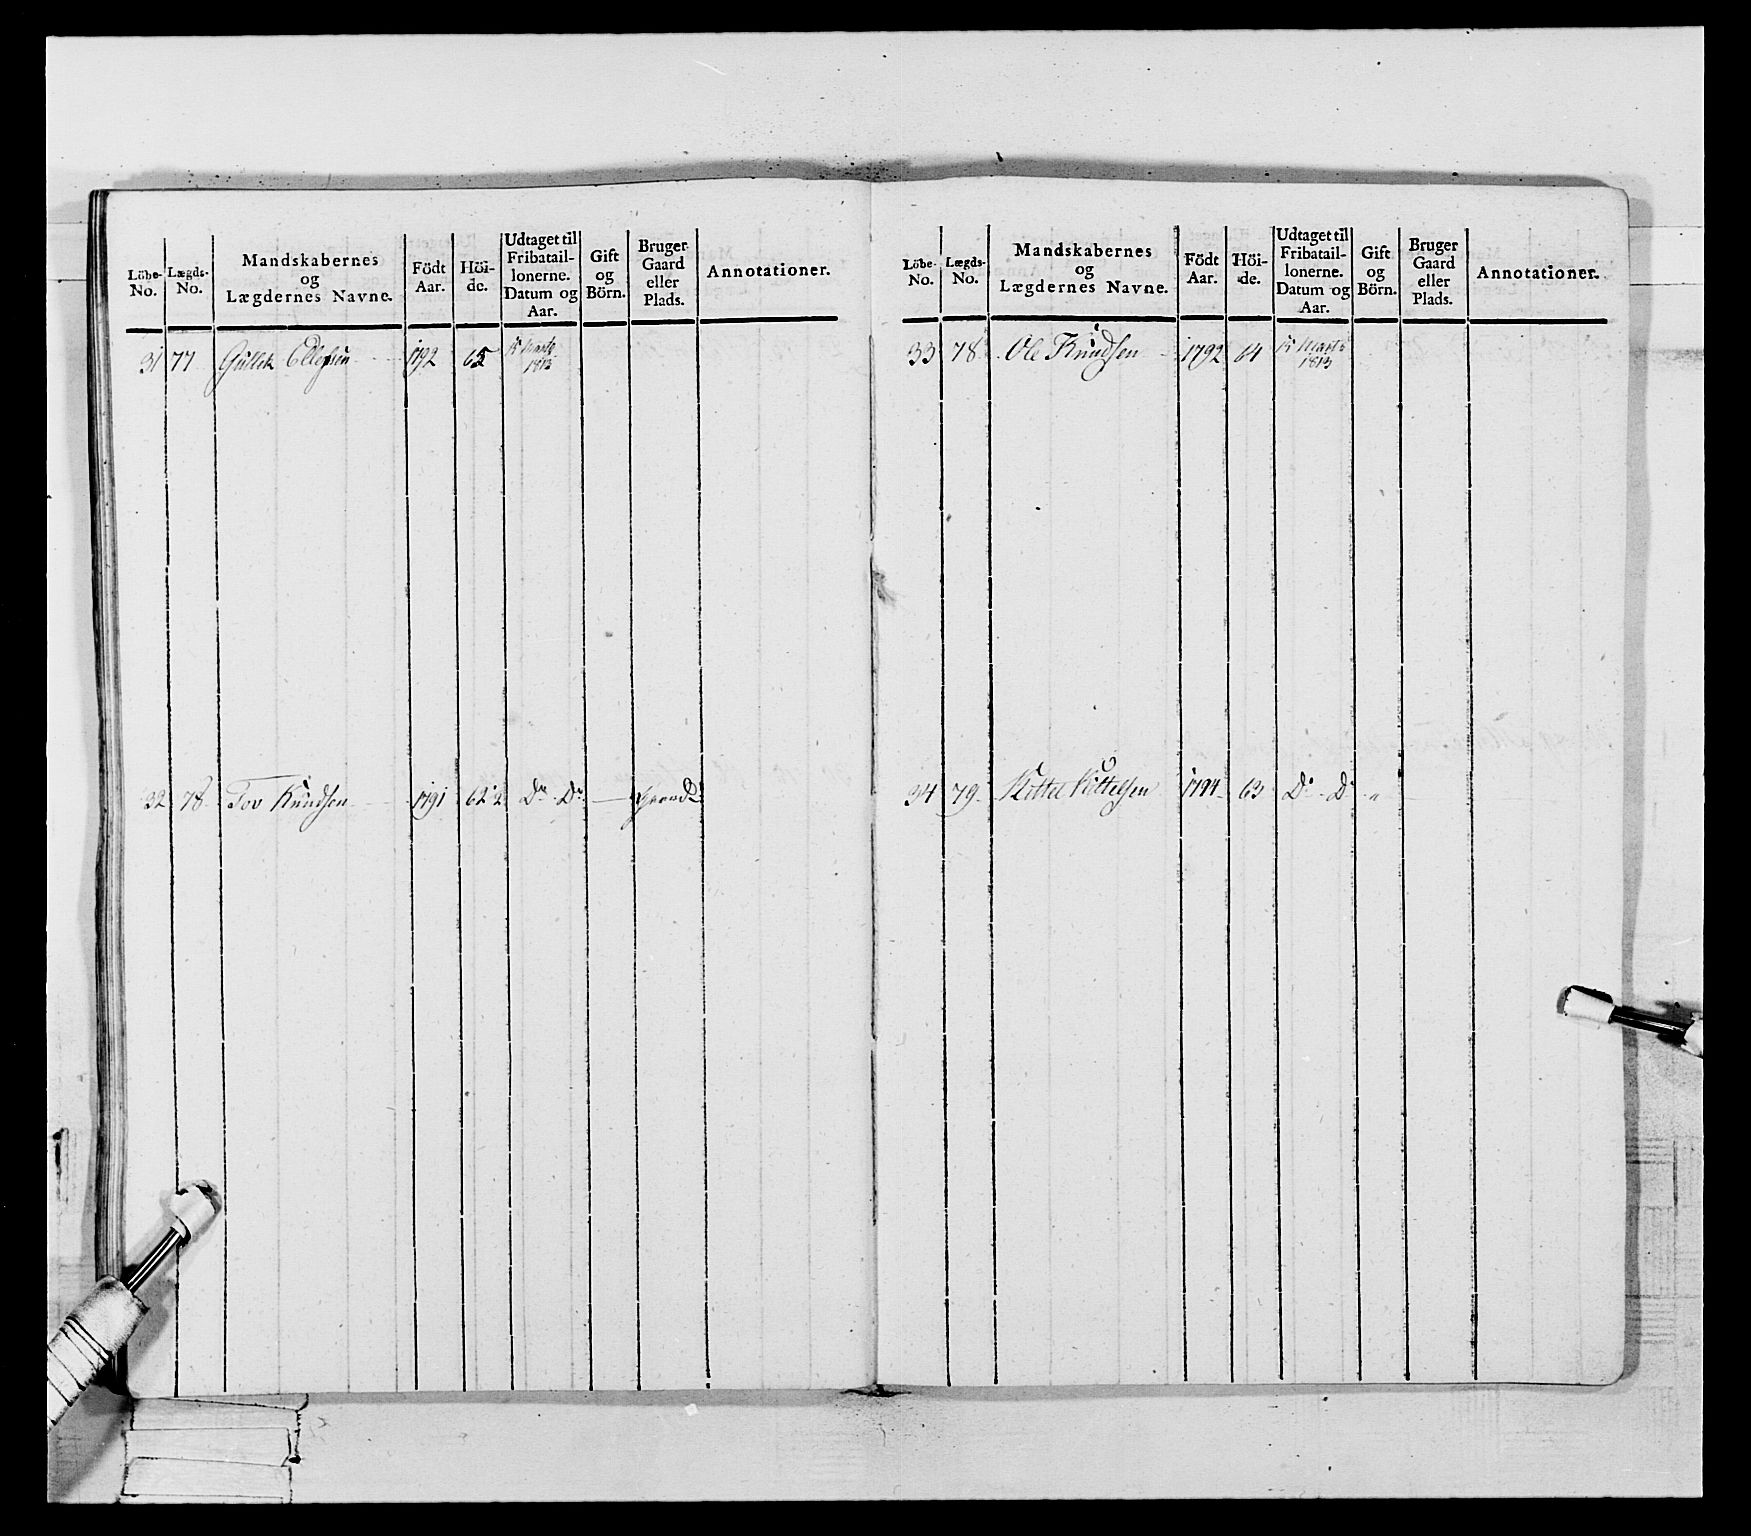 Löbe- No. | Lægds- No. | Mandskabernes og Lægdernes Navne. | Födt Aar. | Höi- de. | Udtaget til Fribatail- lonerne. Datum og Aar. | Gift og Börn. | Bruger Gaard eller Plads. | Annotationer.
31 77 Gullek Ellefsen 1792 65 15 Marts 1813
32 78 Tov Knudsen 1791 62½ Do Do
Löbe- No. | Lægds- No. | Mandskabernes og Lægdernes Navne. | Födt Aar. | Höi- de. | Udtaget til Fribatail- lonerne. Datum og Aar. | Gift og Börn. | Bruger Gaard eller Plads. | Annotationer.
33 78 Ole Knudsen 1792 64 15 Marts 1813
34 79 Kittel Kittelsen 1794 63 Do Do „